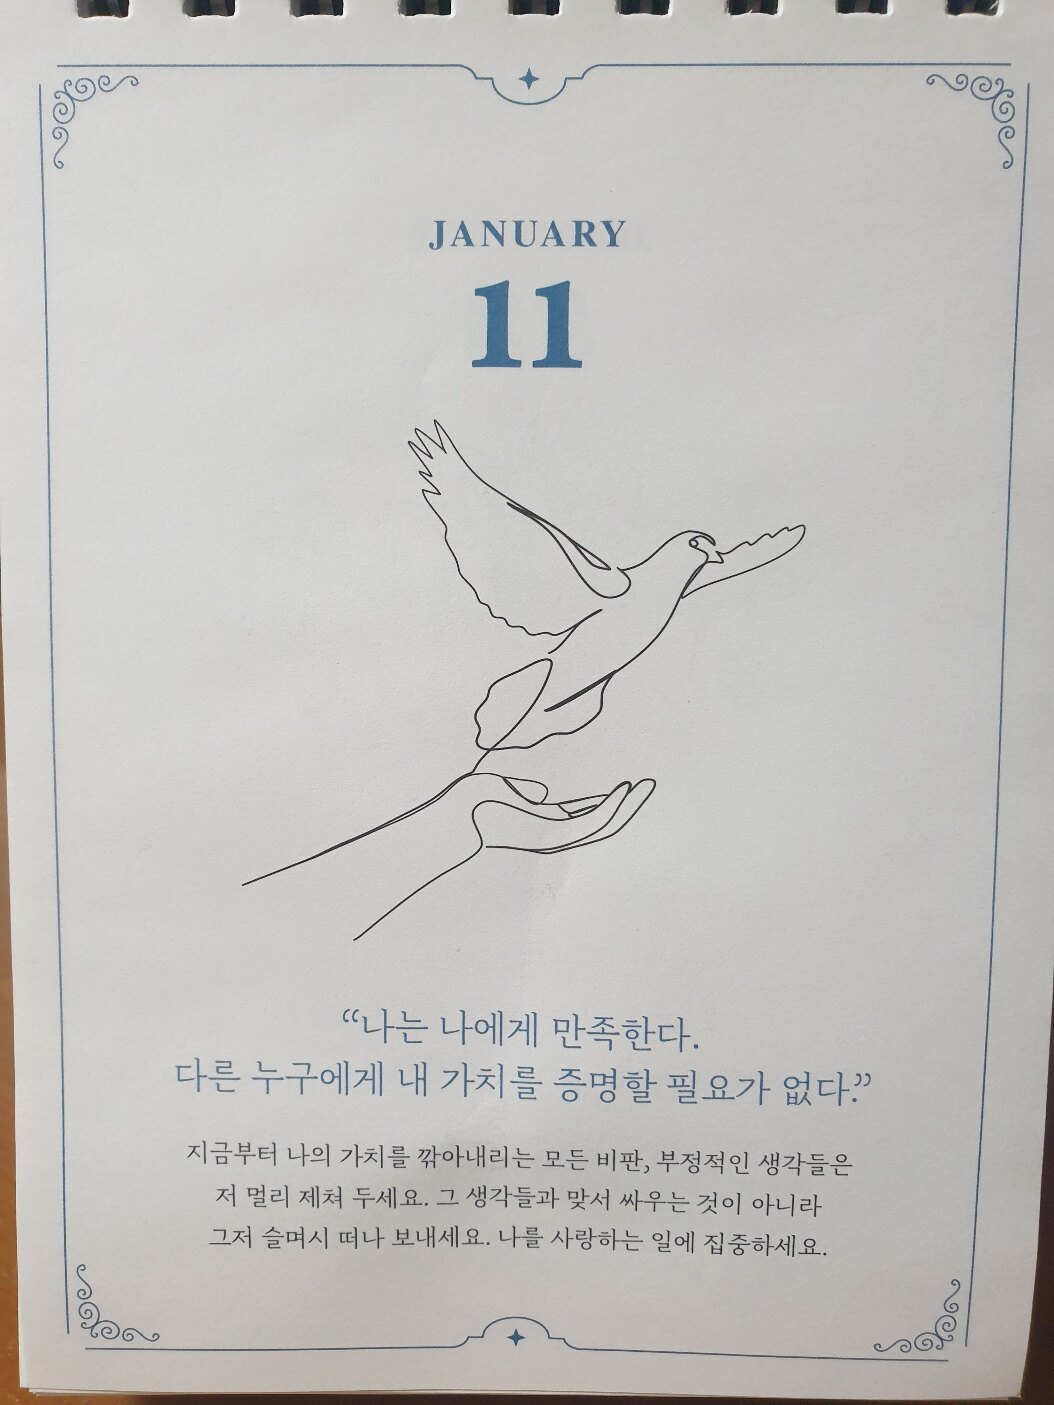 JANUARY
11
“나는 나에게 만족한다.
다른 누구에게 내 가치를 증명할 필요가 없다.”
지금부터 나의 가치를 깎아내리는 모든 비판, 부정적인 생각들은
저 멀리 제쳐 두세요. 그 생각들과 맞서 싸우는 것이 아니라
그저 슬며시 떠나 보내세요. 나를 사랑하는 일에 집중하세요.